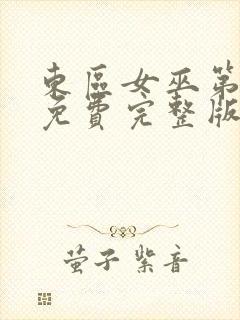 東區女巫第
免費完整版
萤子紫音